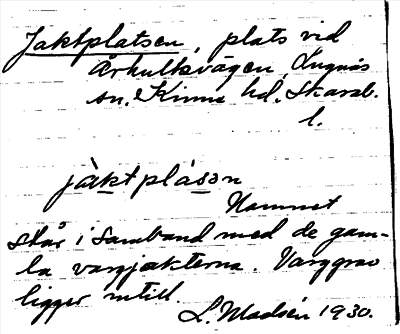 Jaktplatsen, plats vid
Århultsvägen, Lugnås
sn. Kinne hd. Skarab.
l.
jàktplásən
Namnet
står i samband med de gam-
la vargjakterna. Varggrav
ligger intill.
L. Madsén 1930.